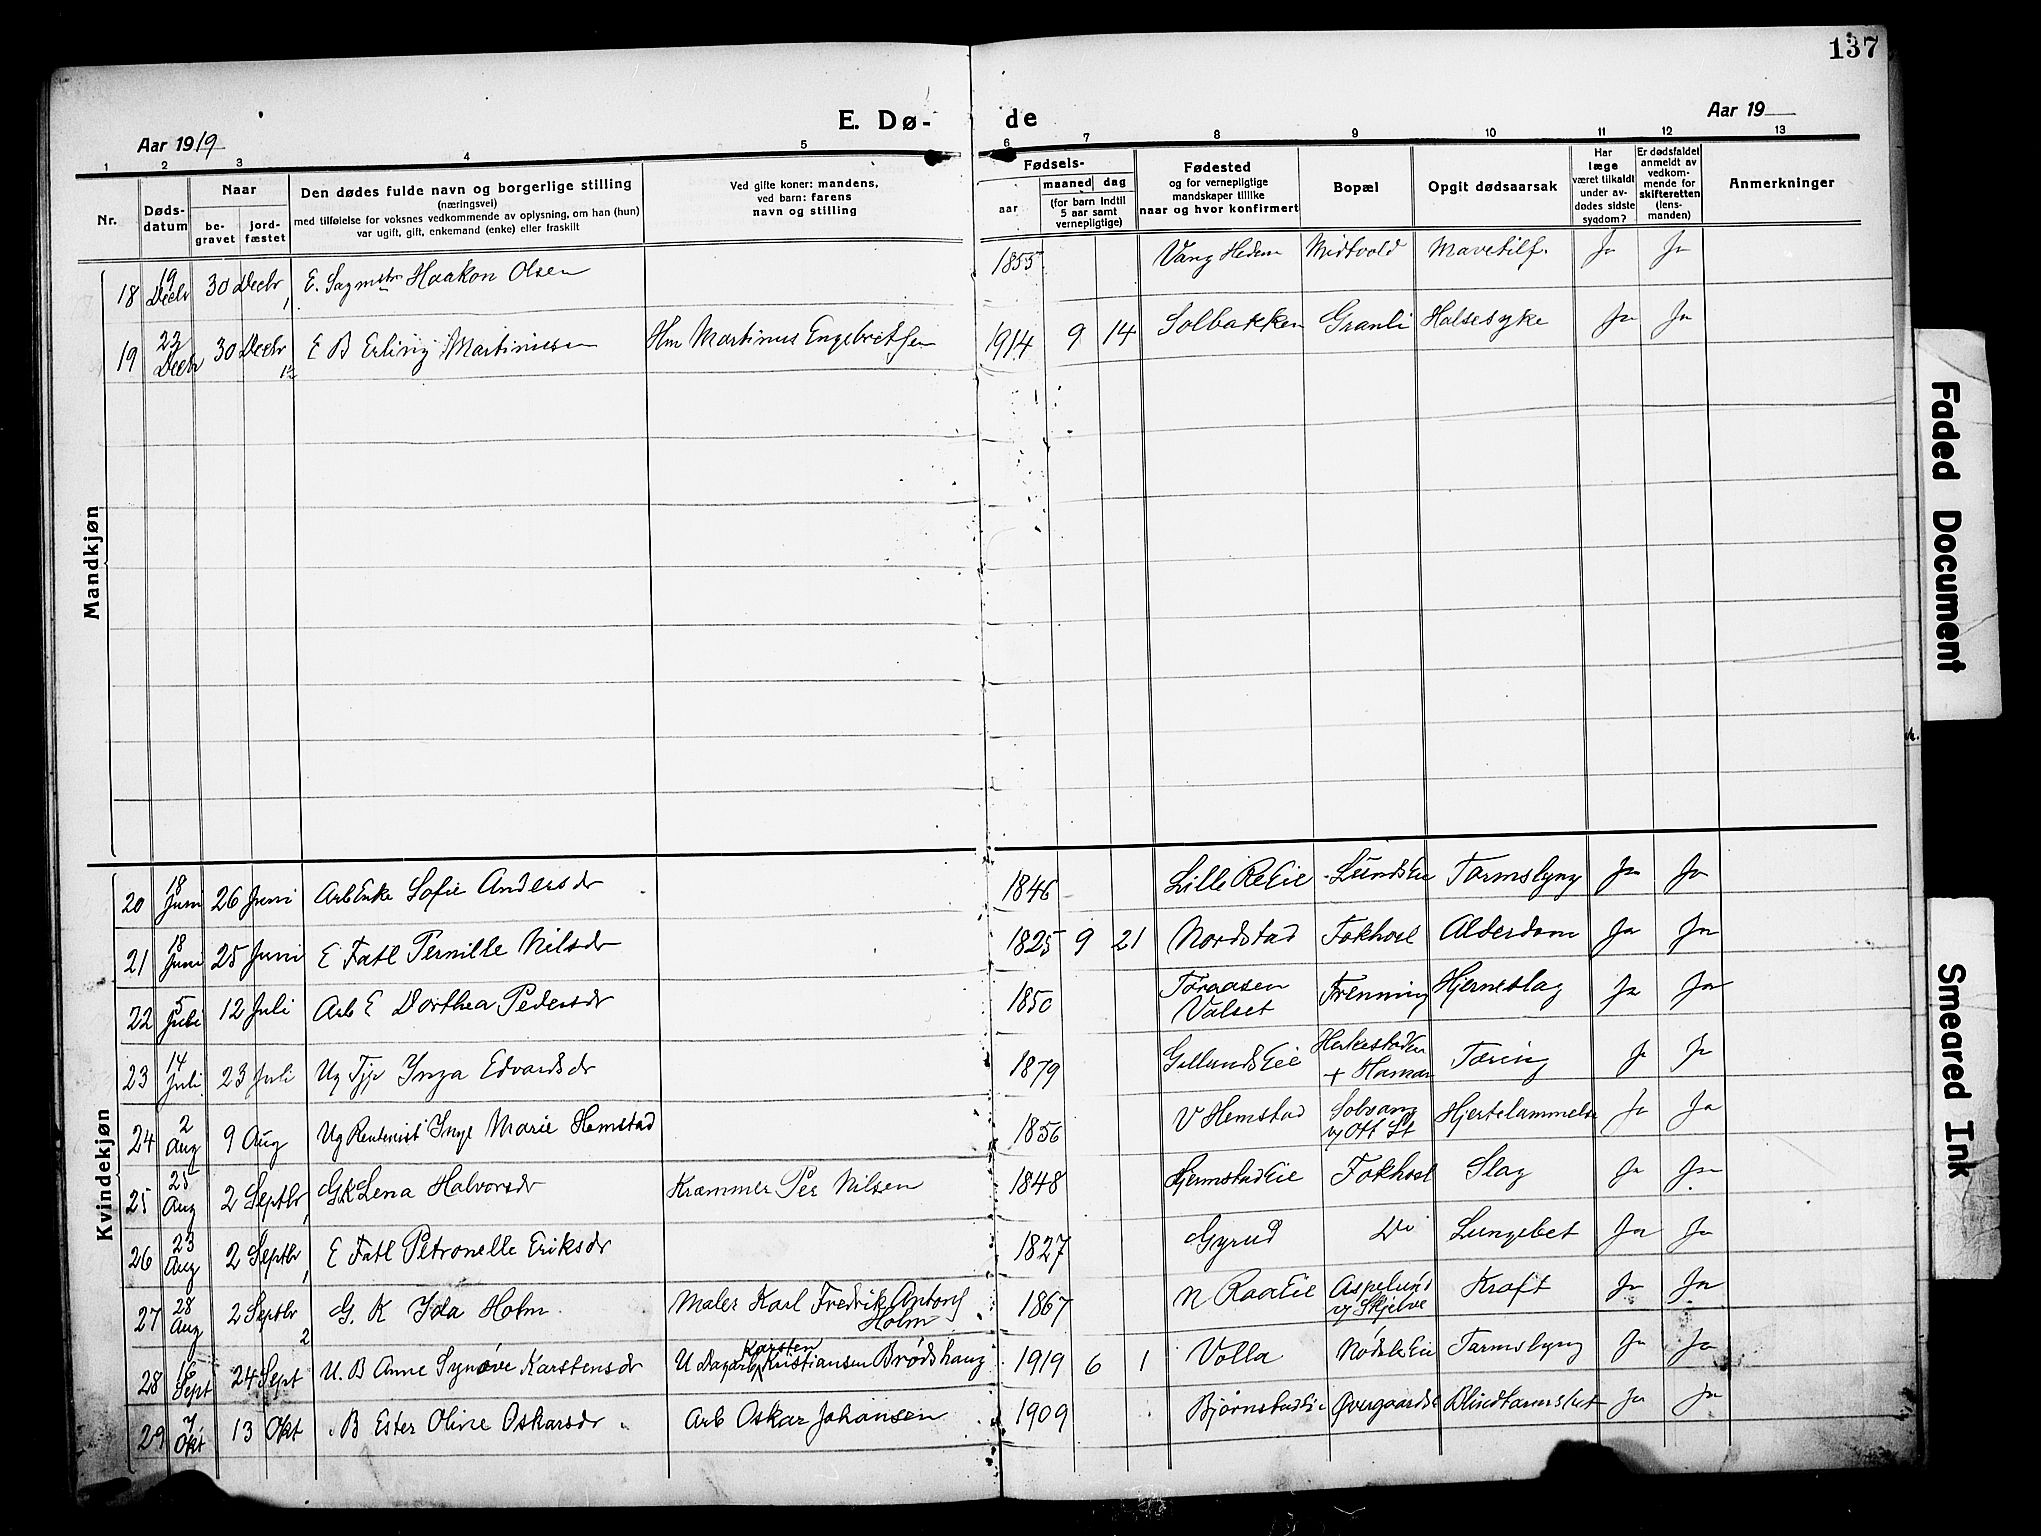 137
E. Dø-
de
Aar 1919
Aar 19
1 2 3 4 5 6 7 8 9 10 11 12 13
Nr.
Døds-
datum
Naar
be-
gravet
jord-
fæstet
Den dødes fulde navn og borgerlige stilling
(næringsvei)
med tilføielse for voksnes vedkommende av oplysning, om han (hun)
var ugift, gift, enkemand (enke) eller fraskilt
Ved gifte koner: mandens,
ved barn: farens
navn og stilling
Fødsels-
aar
maaned
dag
(for barn indtil
5 aar samt
vernepligtige)
Fødested
og for vernepligtige
mandskaper tillike
naar og hvor konfirmert
Bopæl
Opgit dødsaarsak
Har
læge
været tilkaldt
under av-
dødes sidste
sygdom?
Er dødsfaldet
anmeldt av
vedkom-
mende for
skifteretten
(lens-
manden)
Anmerkninger
Mandkjøn
18 19 Decbr 30 Decbr 1 E. Sagmstr Haakon Olsen 1855 Vang Hedem Midtvold Mavetilf. Ja Ja
19 23 Decbr 30 Decbr 12 E B Erling Martinusen Hm Martinus Engebretsen 1914 9 14 Solbakken Granli Halsesyke Ja Ja
Kvindekjøn
20 18 Juni 26 Juni Arb Enke Sofie Andersdr 1846 Lille Re Eie LundsEie Tarmslyng Ja Ja
21 18 Juni 25 Juni E Fatl Pernille Nilsdr 1825 9 21 Nordstad Fokhol Alderdom Ja Ja
22 5 Juli 12 Juli Arb E Dorthea Pedersdr 1850 Toraasen Valset Frenning Hjerneslag Ja Ja
23 14 Juli 23 Juli Ug Tjp Inga Edvardsdr 1879 GillundsEie HerkestadEie + Hamar Tæring Ja Ja
24 2 Aug 9 Aug Ug Rentenist Inge Marie Hemstad 1856 V Hemstad Solvang v/ Ott St Hjertelammelse Ja Ja
25 25 Aug 2 Septbr 1 G K Lena Halvorsdr Kræmmer Per Nilsen 1848 HjermstadEie Fokhol Slag Ja Ja
26 23 Aug 2 Septbr 1 E Fatl Petronelle Eriksdr 1827 Gyrud Do Lungebet Ja Ja
27 28 Aug 2 Septbr 2 G. K Ida Holm Maler Karl Fredrik Antons Holm 1867 N RaaEie Aspelund v/ Skjelve Kræft Ja Ja
28 16 Sept 24 Sept U. B Anne Synøve Karstensdr U Dagarb Karsten Kristiansen Brødshaug 1919 6 1 Volla NødsleEie Tarmslyng Ja Ja
29 7 Okt 13 Okt B Ester Oline Oskarsdr Arb Oskar Johansen 1909 BjørnstadEie Øvergaards Blindtarmsbet Ja Ja
Faded Document
Smeared Ink